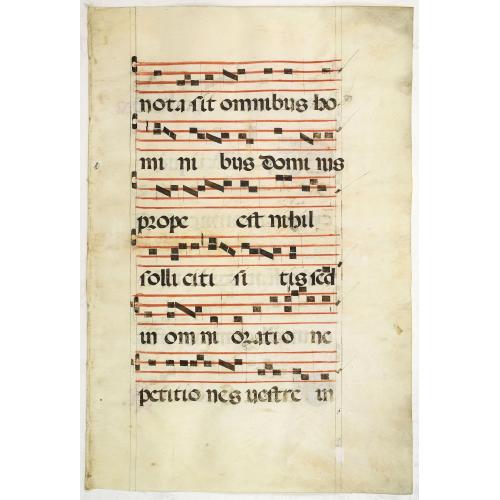 nota sit omnibus ho
mi ni bus domi nus
prope est nihil
solli citi si tis sed
in om ni oratio ne
petitio nes vestre in